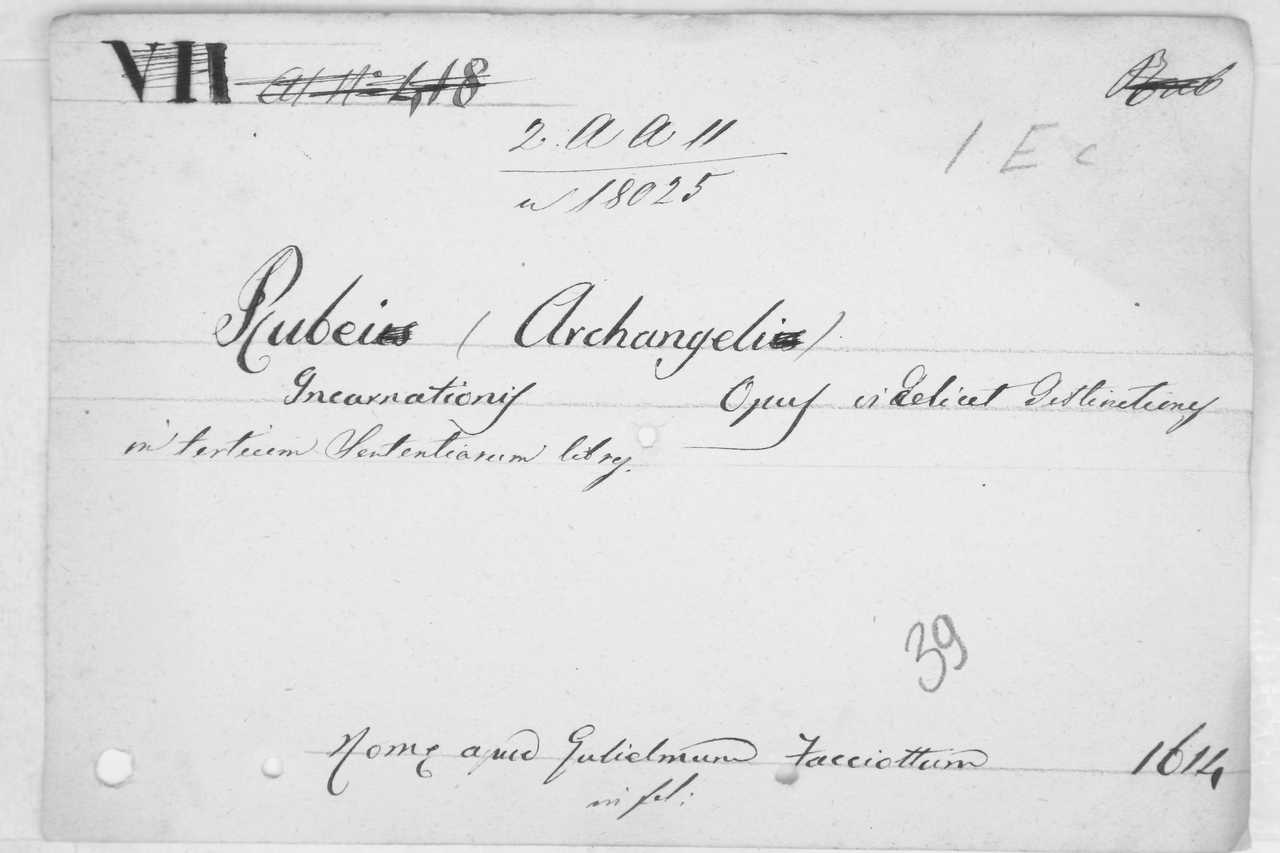 VII a II: 418
Rub
2. A A 11
1 E c
u 18025
Rubei (Archangeli)
Incarnationis Opus videlicet Distinctiones
in tertium Sententiarum libry.
39
Rome apud Gulielmum Facciottum 1614
in fol: